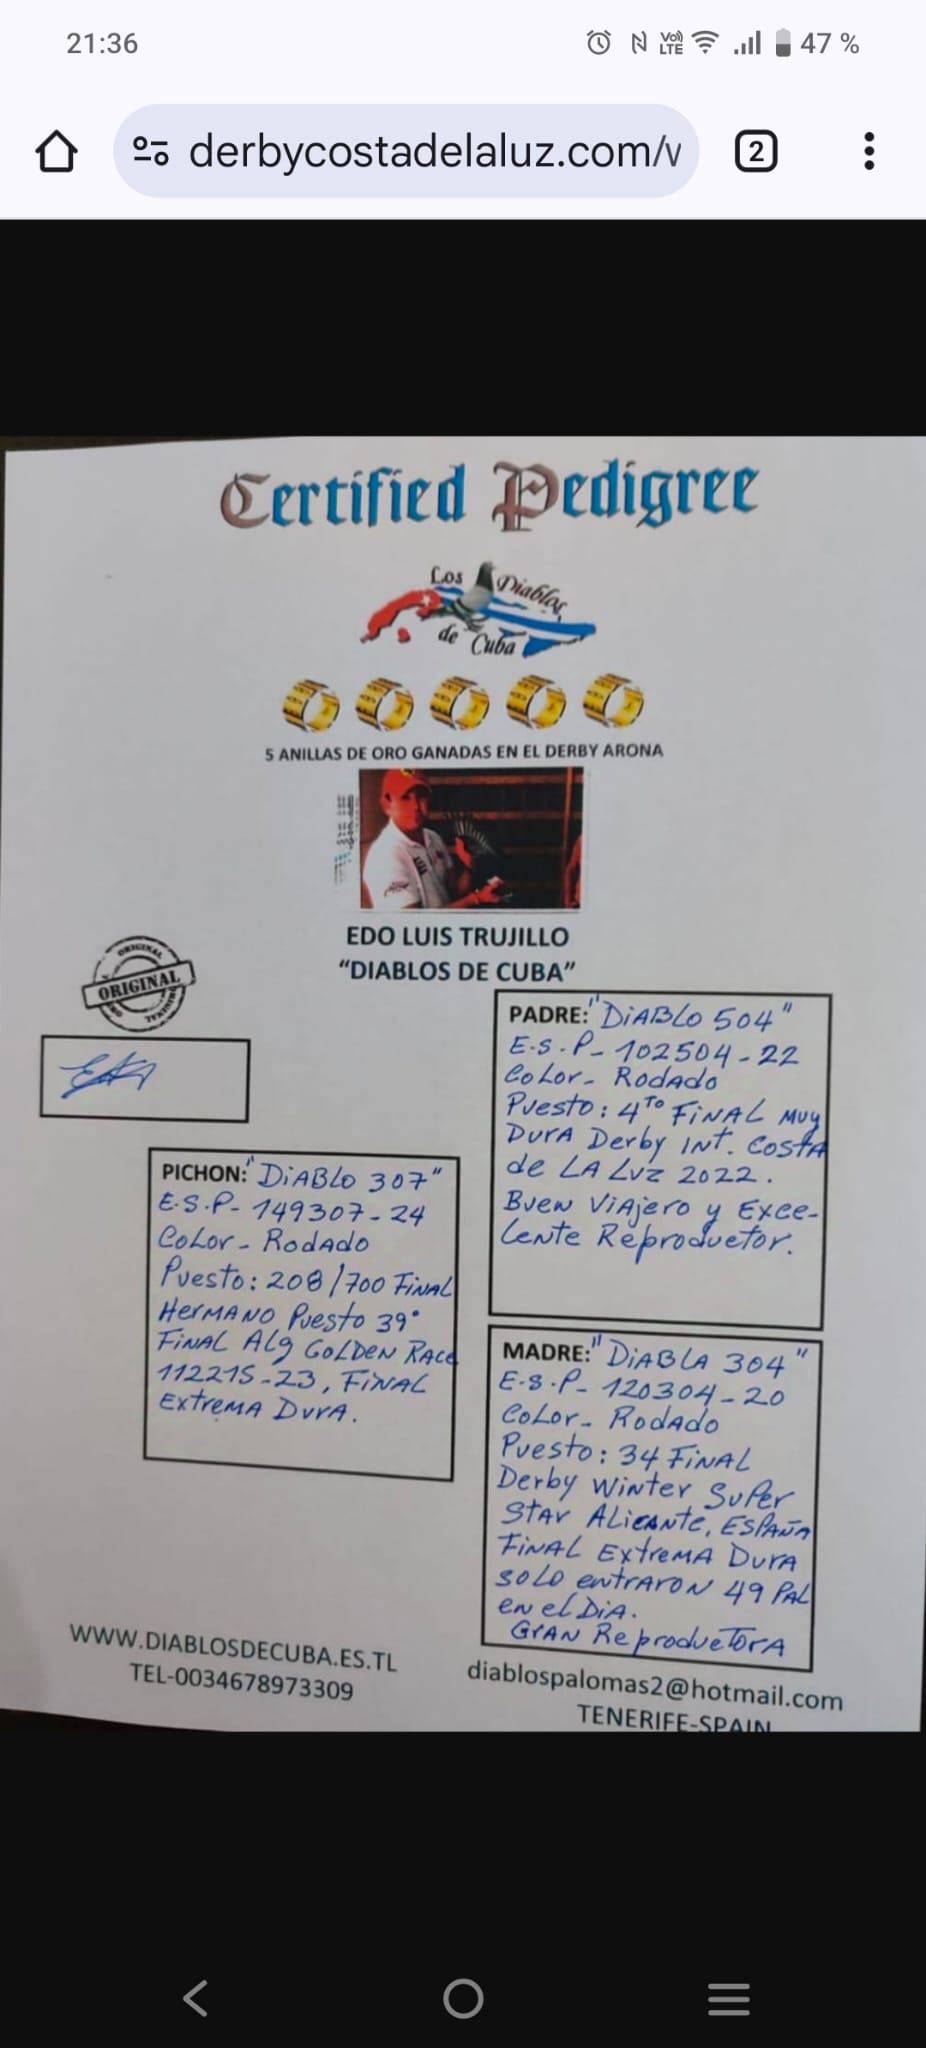 21:36
VoD LTE 47 %
derbycostadelaluz.com/v
2
Certified Pedigree
Los Diablos
de Cuba
5 ANILLAS DE ORO GANADAS EN EL DERBY ARONA
EDO LUIS TRUJILLO
"DIABLOS DE CUBA"
ORIGINAL
ORIGINAL
PADRE: "DiABLO 504"
E.S.P- 102504-22
CoLor- RoDADo
Puesto: 4TO FiNAL Muy
DurA Derby INT. CostA
de LA Luz 2022.
Buen ViAjero y Exce-
Lente Reproductor.
PICHON: "DiABLO 307"
E.S.P- 149307-24
CoLor- RoDADo
Puesto: 208/700 FiNAL
HerMANO Puesto 39°
FiNAL ALg GoLDEN RAce
112215-23, FiNAL
ExtreMA DurA.
MADRE: "DiABLA 304"
E.S.P- 120304-20
CoLor- RoDADo
Puesto: 34 FiNAL
Derby WiNter SuPer
StAr ALicANte, ESPAÑA
FiNAL ExtreMA DurA
SoLo entrARoN 49 PAL
eN el DiA.
GrAN ReproductorA
WWW.DIABLOSDECUBA.ES.TL
TEL-0034678973309
diablospalomas2@hotmail.com
TENERIFE-SPAIN